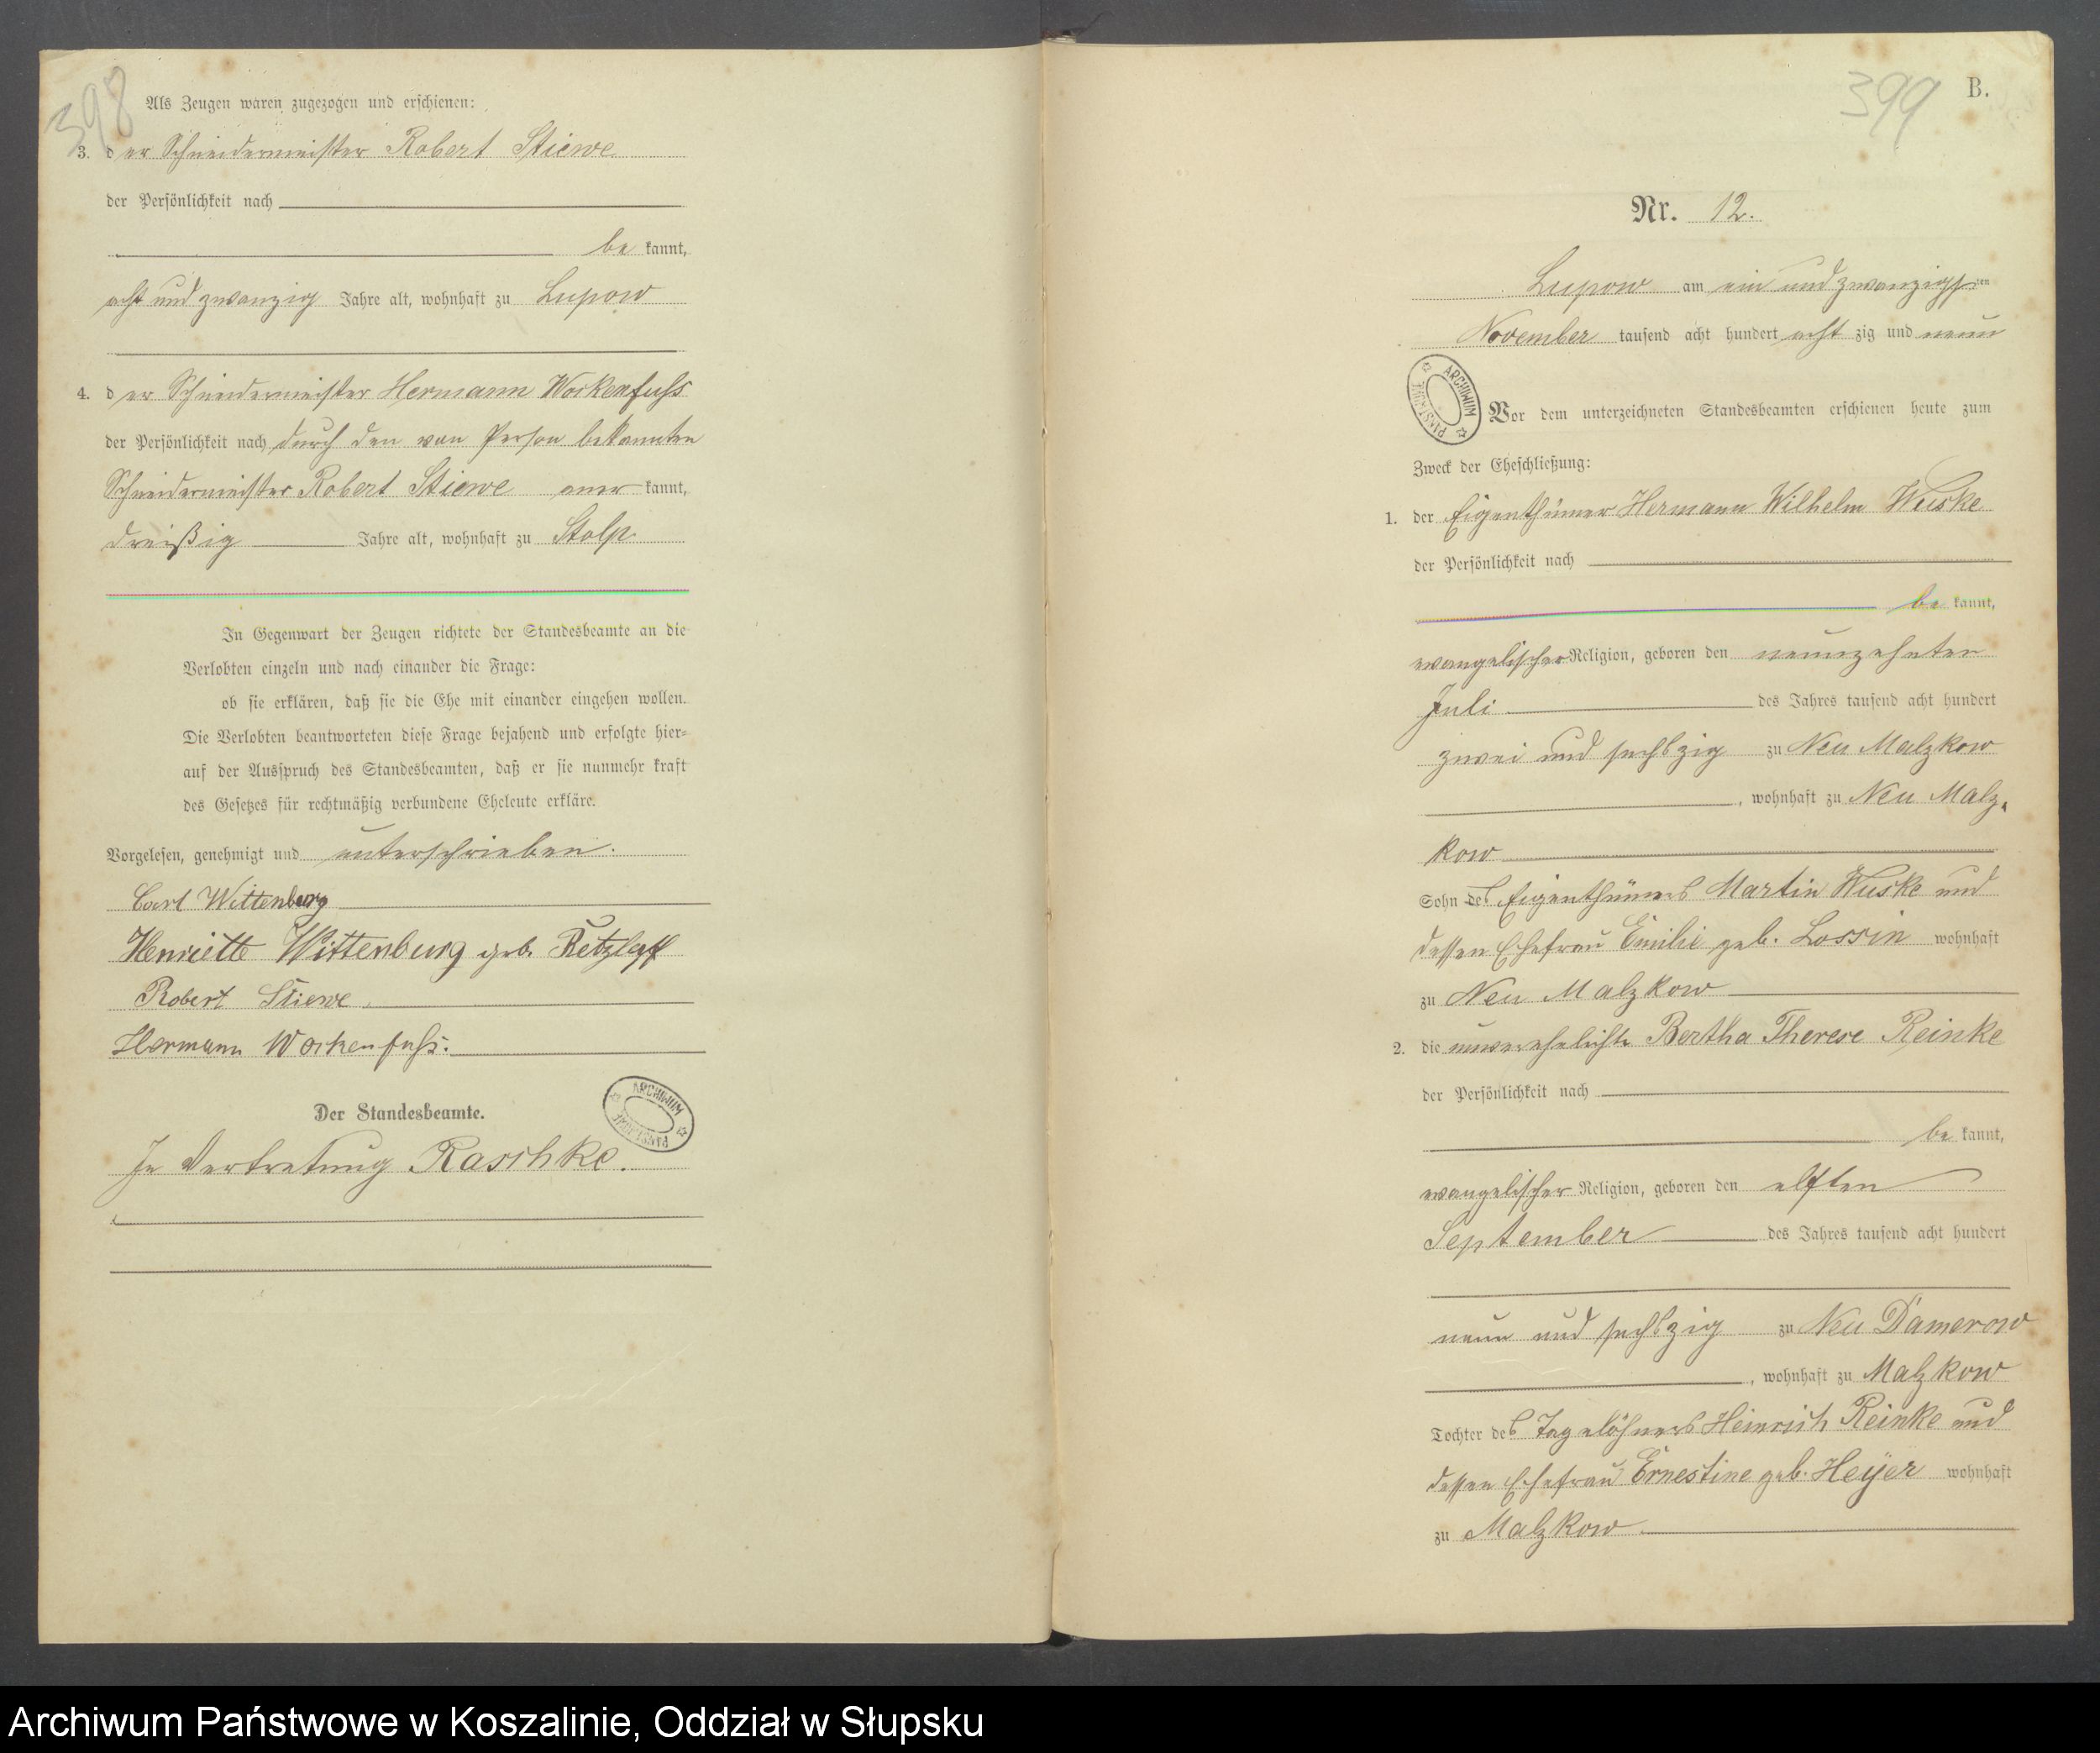 398
Als Zeugen waren zugezogen und erschienen:
3. der Schneidermeister Robert Stiewe
der Persönlichkeit nach
be kannt,
acht und zwanzig Jahre alt, wohnhaft zu Lupow
4. der Schneidermeister Hermann Workenfuss
der Persönlichkeit nach durch den von Person bekannten
Schneidermeister Robert Stiewe aner kannt,
dreißig Jahre alt, wohnhaft zu Stolp
In Gegenwart der Zeugen richtete der Standesbeamte an die
Verlobten einzeln und nach einander die Frage:
ob sie erklären, daß sie die Ehe mit einander eingehen wollen.
Die Verlobten beantworteten diese Frage bejahend und erfolgte hier=
auf der Ausspruch des Standesbeamten, daß er sie nunmehr kraft
des Gesetzes für rechtmäßig verbundene Eheleute erkläre.
Vorgelesen, genehmigt und unterschrieben.
Carl Wittenberg
Henriette Wittenburg geb. Retzlaff
Robert Stiewe
Hermann Workenfuss.
Der Standesbeamte.
In Vertretung Raschke.
ARCHIWUM PAŃSTWOWE
399
B.
Nr. 12.
Lupow am ein und zwanzigsten
November tausend acht hundert acht zig und neun
ARCHIWUM PAŃSTWOWE
Vor dem unterzeichneten Standesbeamten erschienen heute zum
Zweck der Eheschließung:
1. der Eigenthümer Hermann Wilhelm Wuske
der Persönlichkeit nach
be kannt,
evangelischer Religion, geboren den neunzehnten
Juli des Jahres tausend acht hundert
zwei und sechszig zu Neu Malzkow
, wohnhaft zu Neu Malz-
kow
Sohn des Eigenthümers Martin Wuske und
dessen Ehefrau Emilie geb. Lossin wohnhaft
zu Neu Malzkow
2. die unverehelichte Bertha Therese Reinke
der Persönlichkeit nach
be kannt,
evangelischer Religion, geboren den elften
September des Jahres tausend acht hundert
neun und sechszig zu Neu Damerow
, wohnhaft zu Malzkow
Tochter des Tagelöhners Heinrich Reinke und
dessen Ehefrau Ernestine geb. Heyer wohnhaft
zu Malzkow
Archiwum Państwowe w Koszalinie, Oddział w Słupsku